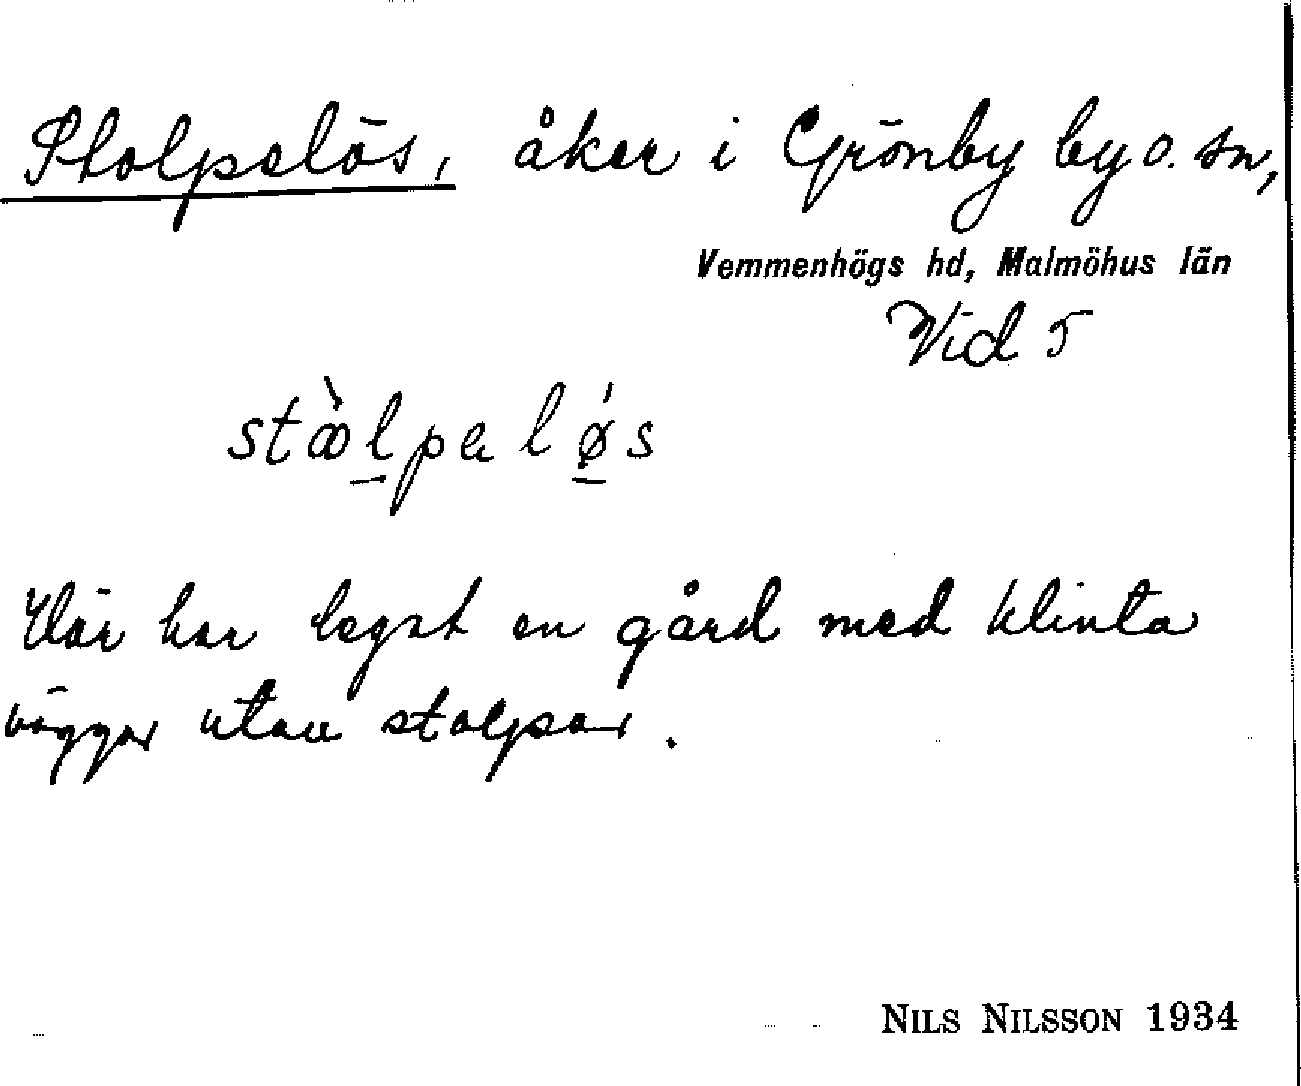 Stolpelös, åker i Grönby by o. sn,
Vemmenhögs hd, Malmöhus län
Vid 5
stàlpa løs
Här har legat en gård med klinta
väggar utan stolpar.
NILS NILSSON 1934